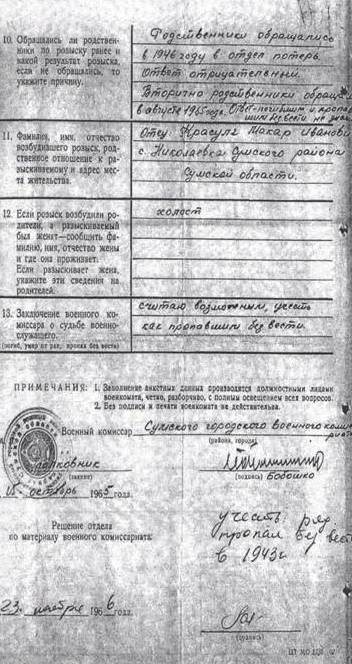 10. Обращались ли родствен-
ники по розыску ранее и
какой результат розыска,
если не обращались, то
укажите причину.
Родственники обращались
в 1946 году в отдел потерь.
Ответ отрицательный.
Вторично родственники обращ
в августе 1965 года. Ответ-погибшим и пропа
шим без вести не зна
11. Фамилия, имя, отчество
возбудившего розыск, род-
ственное отношение к ра-
зыскиваемому и адрес мес-
та жительства.
Отец Красуля Макар Иванови
с. Николаевка Сумского района
Сумской области.
12. Если розыск возбудили ро-
дители, а разыскиваемый
был женат—сообщить фа-
милию, имя, отчество жены
и где она проживает.
Если разыскивает жена,
укажите эти сведения на
родителей.
холост
13. Заключение военного ко-
миссара о судьбе военно-
служащего.
(погиб, умер от ран, пропал без вести)
считаю возможным, учесть
как пропавшим без вести.
ПРИМЕЧАНИЯ: 1. Заполнение анкетных данных производится должностными лицами
военкомата, четко, разборчиво, с полным освещением всех вопросов.
2. Без подписи и печати военкомата не действительна.
Военный комиссар Сумского городского военного коми
риата
(района, города)
полковник
(звание)
(подпись) Бобошко
15 октябрь 1965 года.
Решение отдела
по материалу военного комиссариата
учесть ряд
пропал без вест
в 1943г
23 ноября 1966 года.
(подпись)